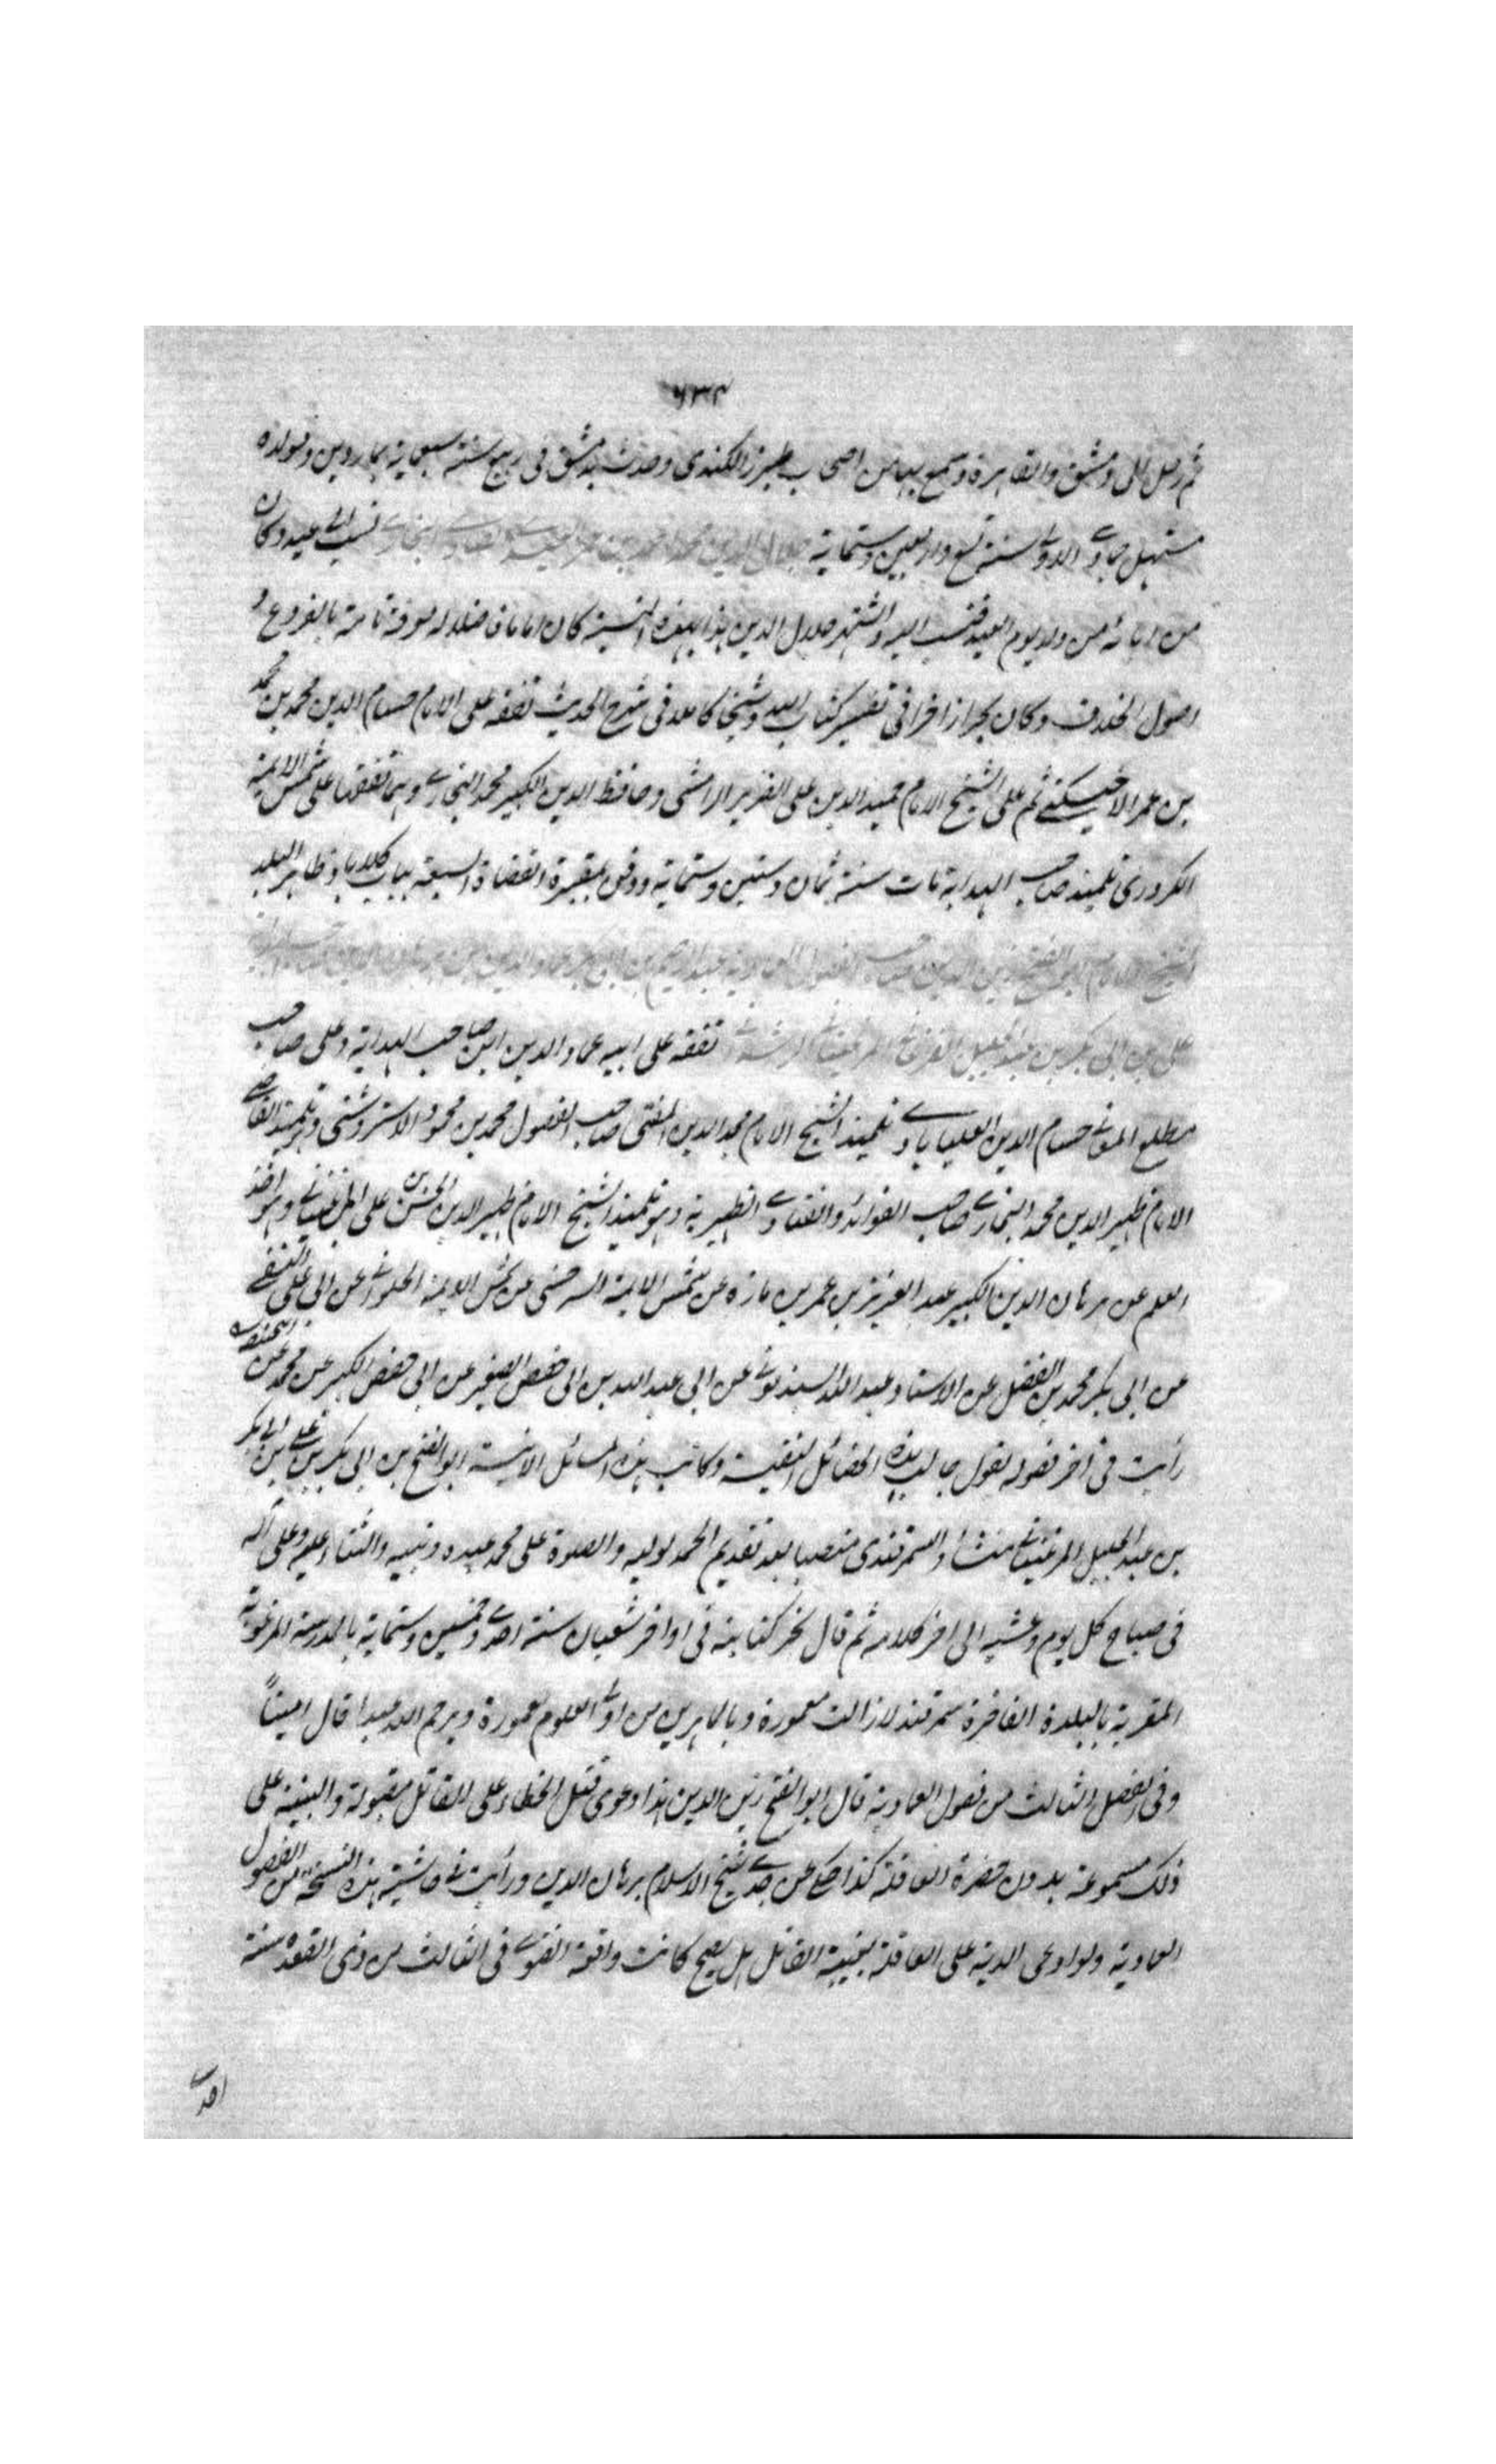 ٦٣٢
ثم رحل الى دمشق والقاهرة وسمع بها من اصحاب طبرزد الكندى وحدث بدمشق فى ربيع سنة سبعماية بماردين ومولده
مستهل جمادى الاولى سنة تسع واربعين وستماية جلال الدين محمد بن احمد بن عمر العيدى البخارى نسب الى عيد وكان
من ابائه من ولد يوم العيد فنسب اليه واشتهر جلال الدين هذا بهذه النسبة كان اماما فاضلا له معرفة تامة بالفروع و
اصول الخلاف وكان بحرا زاخرا فى تفسير كتاب الله وشيخا كاملا فى شرح الحديث تفقه على الامام حسام الدين محمد بن محمد
بن عمر الاخسيكثى ثم على الشيخ الامام حميد الدين على الضرير الرامشى وحافظ الدين الكبير محمد البخارى وهما تفقها على شمس الايمة
الكردرى تلميذ صاحب الهداية مات سنة ثمان وستين وستماية ودفن بمقبرة القضاة السبعة بباب كلاباد ظاهر البلد
الشيخ الامام ابو الفتح زين الدين صاحب الفصول العمادية عبد الرحيم بن ابى بكر عماد الدين بن برهان الدين
على بن ابى بكر بن عبد الجليل الفرغانى المرغينانى الرشدانى تفقه على ابيه عماد الدين ابن صاحب الهداية وعلى صاحب
مطلع المعانى حسام الدين العليابادى تلميذ الشيخ الامام مجد الدين المفتى صاحب الفصول محمد بن محمود الاستروشنى وهو تلميذ القاضى
الامام ظهير الدين محمد البخارى صاحب الفوائد والفتاوى الظهيرية وهو تلميذ الشيخ الامام ظهير الدين الحسن بن على المرغينانى وهو اخذ
العلم عن برهان الدين الكبير عبد العزيز بن عمر بن مازه عن شمس الايمة السرخسى عن شمس الايمة الحلوانى عن ابى على النسفى
عن ابى بكر محمد بن الفضل عن الاستاد عبد الله السبذمونى عن ابى عبد الله بن ابى حفص الصغير عن ابى حفص الكبير عن محمد عن ابى حنيفة
رأيت فى اخر فصوله يقول جالب هذه الخصائل النفيسة وكاتب هذه المسائل الانيسة ابو الفتح بن ابى بكر بن على بن ابى بكر
بن عبد الجليل المرغينانى منشأ والسمرقندى منصبا بعد تقديم الحمد لوليه والصلوة على محمد عبده ونبيه والثناء عليه وعلى آله
فى صباح كل يوم وعشيه الى اخر كلامه ثم قال نجز كتابته فى اواخر شعبان سنة احدى وخمسين وستماية بالمدرسة المرغوبة
المقربة بالبلدة الفاخرة سمرقند لازالت معمورة وبالماهرين من اولى العلوم مغمورة ويرحم الله عبدا قال امينا
وفى الفصل الثالث من فصول العمادية قال ابو الفتح زين الدين هذا دعوى قتل الخطاء على القاتل مقبولة والبينة على
ذلك مسموعة بدون حضرة العاقلة كذا حكى عن جدى شيخ الاسلام برهان الدين ورأيت فى حاشية هذه النسخة من الفصول
العمادية ولو ادعى الدية على العاقلة بغيبة القاتل هل يصح كانت واقعة الفتوى فى الثالث من ذى القعدة سنة
احدى